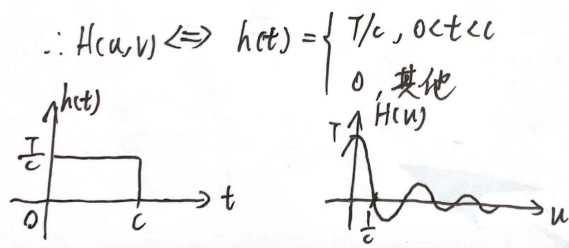 ∴ H(u,v) <=> h(t) = { T/c , 0<t<c
0 , 其他
h(t)
T/c
0 c t
H(u)
T
1/c u